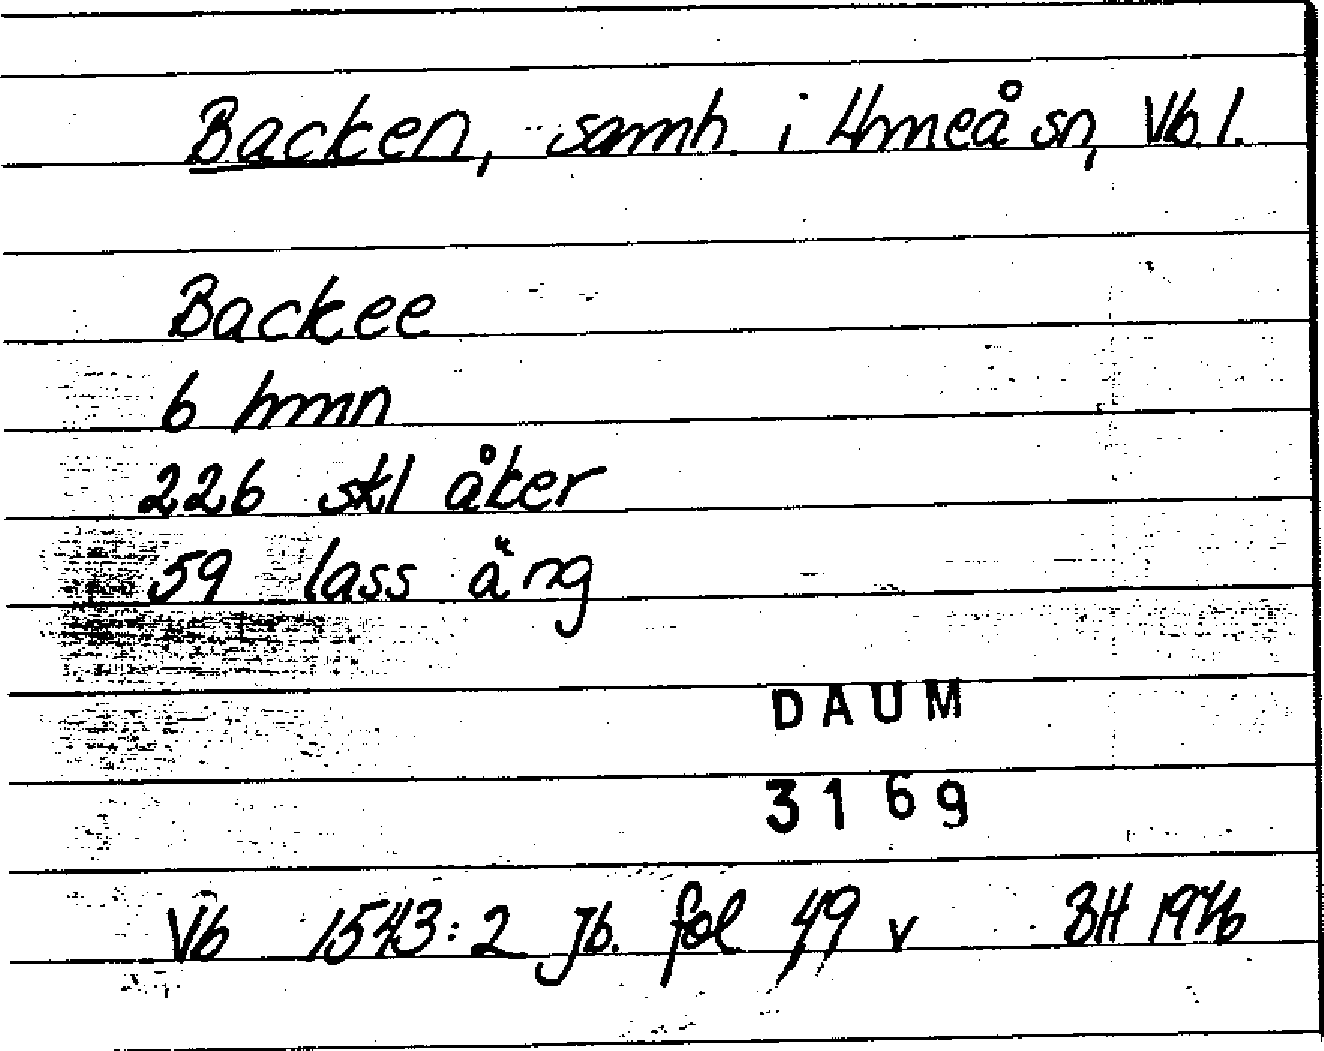 Backen, samh. i Umeå sn, Vb. l.
Backee
6 hmn
226 skl åker
59 lass äng
DAUM
3169
Vb 1543:2 Jb. fol 49 v BH 1976